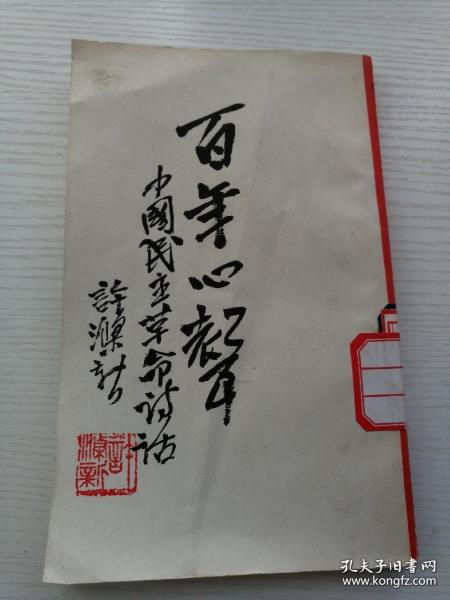 百年心聲
中國民主革命詩話
許滌新
許滌新
孔夫子旧书网
www.kongfz.com